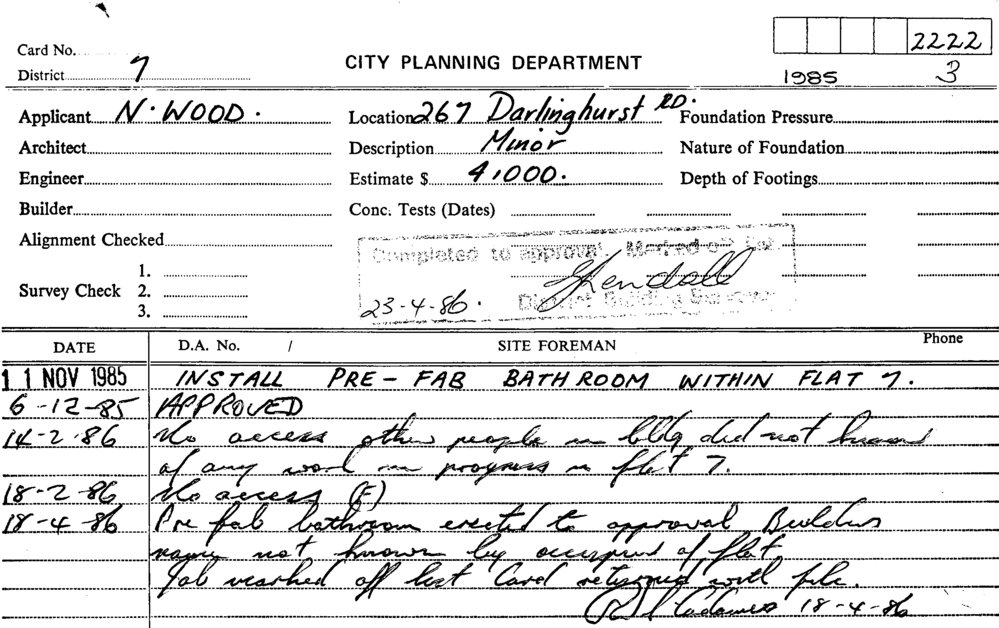 2222
Card No.
District 7
CITY PLANNING DEPARTMENT
1985 3
Applicant N. WOOD.
Location 267 Darlinghurst RD.
Foundation Pressure
Architect
Description Minor
Nature of Foundation
Engineer
Estimate $ 4,000.
Depth of Footings
Builder
Conc. Tests (Dates)
Alignment Checked
Completed to approval. Marked off list
Survey Check 1.
2.
3.
23-4-86. Kendall
District Building Surveyor
DATE D.A. No. / SITE FOREMAN Phone
11 NOV 1985 INSTALL PRE-FAB BATHROOM WITHIN FLAT 7.
6-12-85 APPROVED
14-2-86 No access other people in bldg did not know
of any work in progress in flat 7.
18-2-86 No access (F)
18-4-86 Pre fab bathroom erected to approval Builders
name not known by occupier of flat.
Job marked off list Card returned with file.
18-4-86